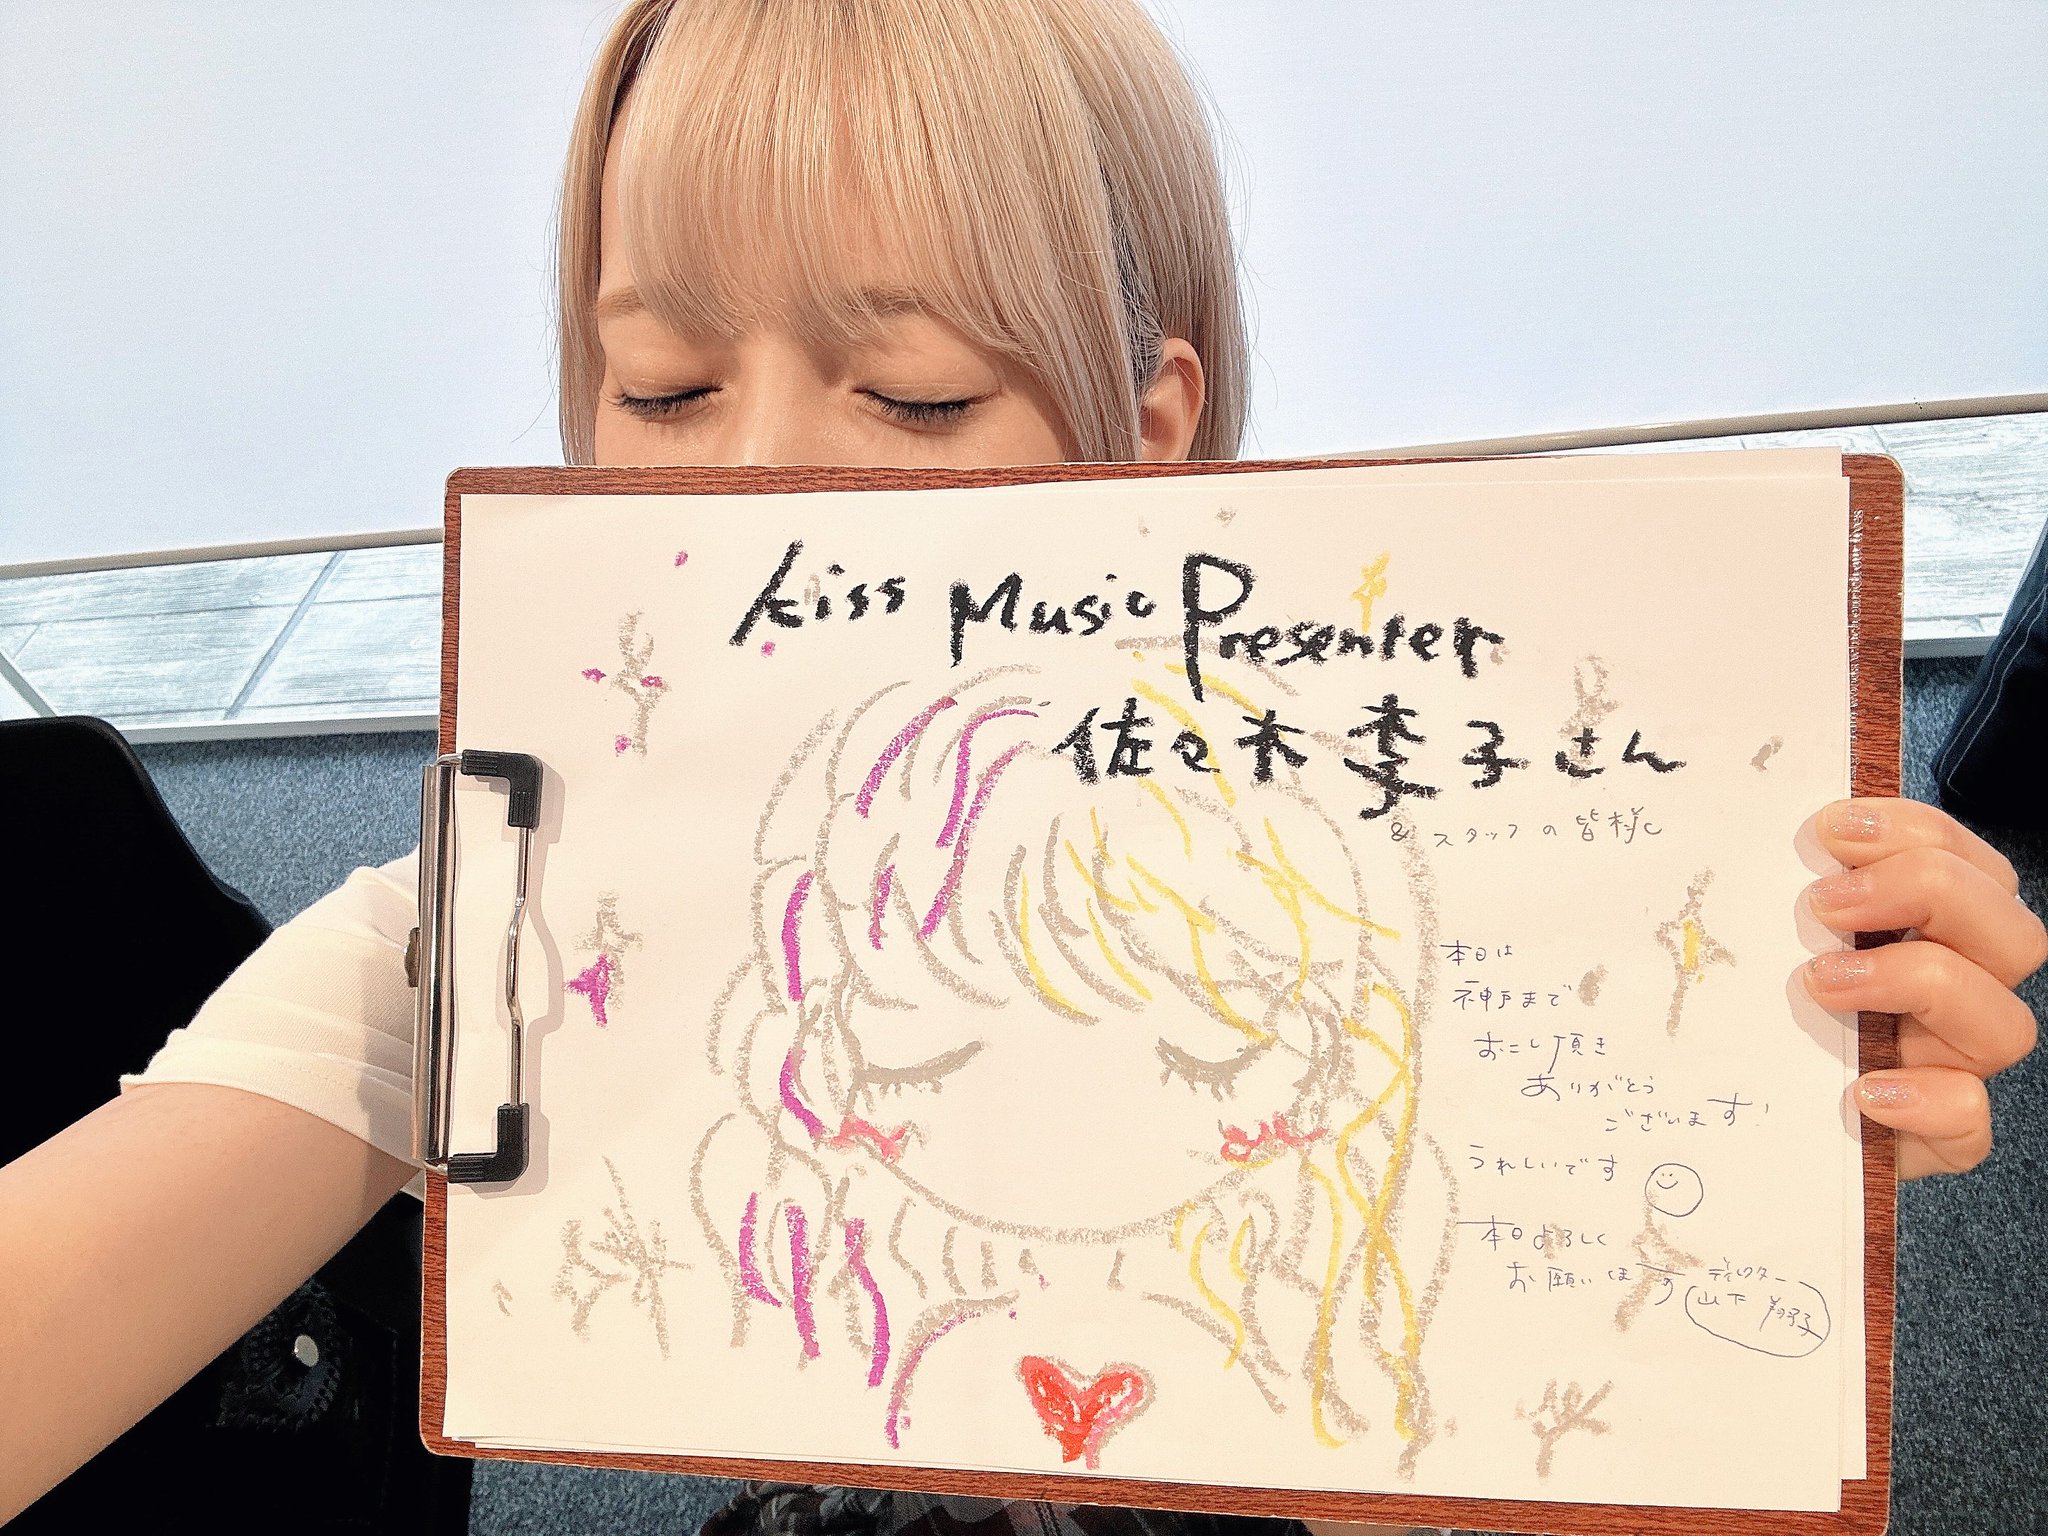 Kiss Music Presenter
佐々木李子さん
& スタッフの皆様へ
本日は
神戸まで
おこし頂き
ありがとう
ございます!
うれしいです
本日よろしく
お願いします
ディレクター
山下